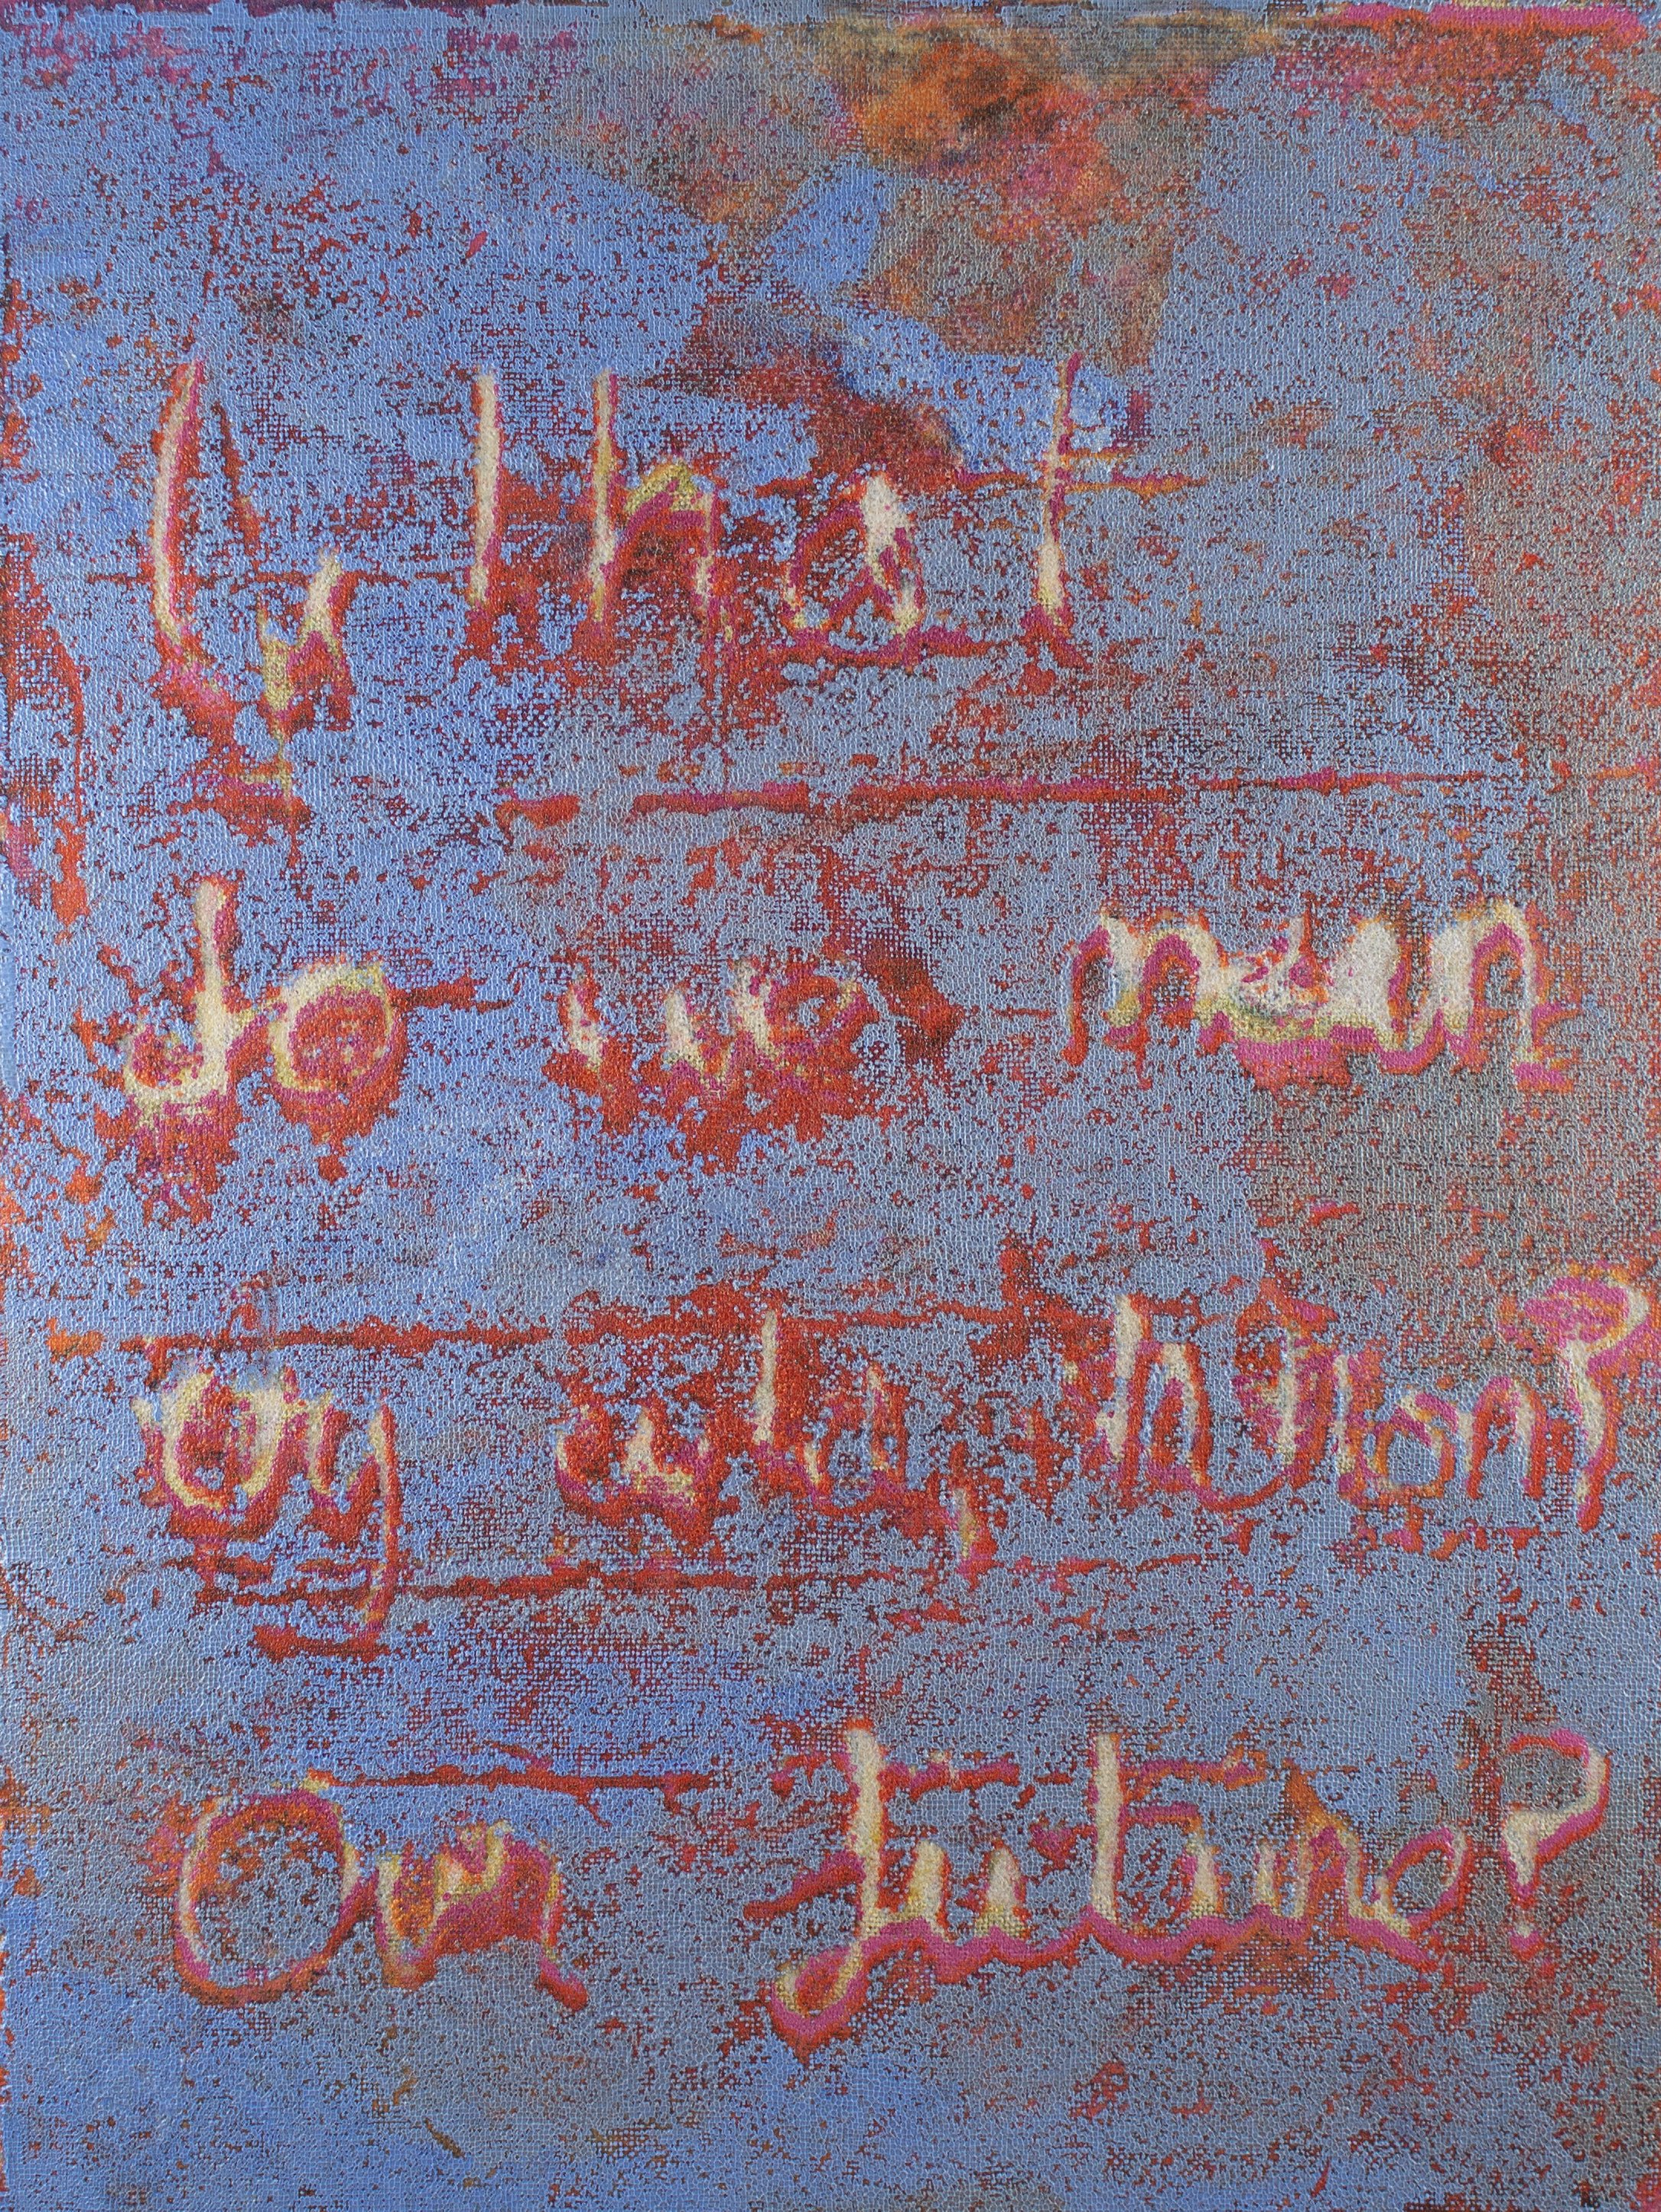 What
do we mean
by evolution?
Our future?